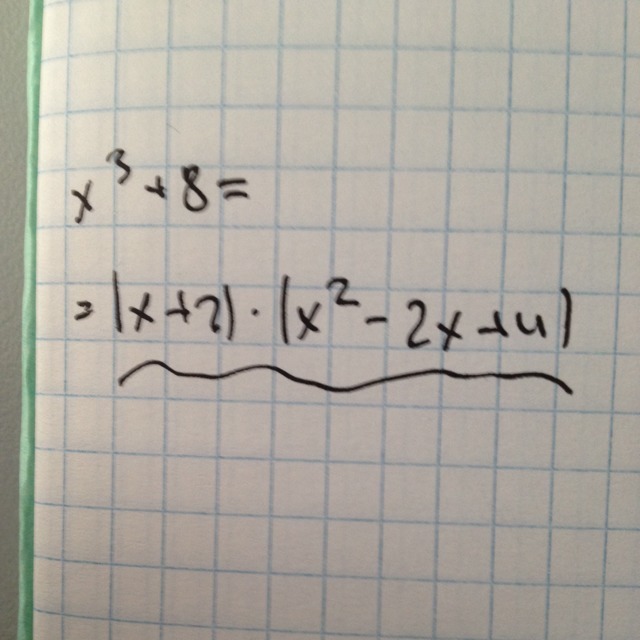 x³+8=
=(x+2)·(x²-2x+4)